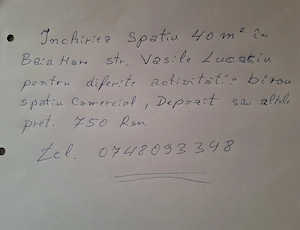 Inchiriez Spatiu 40 m² în
Baia Mare str. Vasile Lucaciu
pentru diferite activitati: birou
spatiu Comercial, Depozit sau altele
pret. 750 Ron
Tel. 0748093348